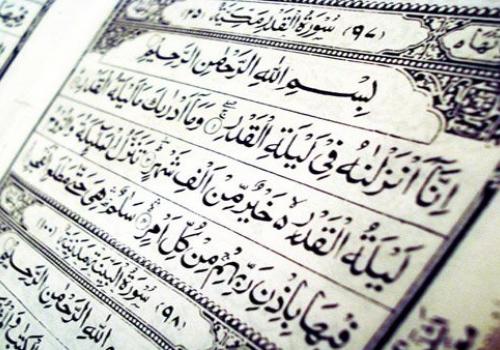 (٩٧) سُوْرَةُ الْقَدْرِ مَكِّيَّةٌ (٢٥)
بِسْمِ اللهِ الرَّحْمٰنِ الرَّحِيْمِ
اِنَّآ اَنْزَلْنٰهُ فِيْ لَيْلَةِ الْقَدْرِ ۝ وَمَآ اَدْرٰىكَ مَا لَيْلَةُ الْقَدْرِ
لَيْلَةُ الْقَدْرِ ۙ خَيْرٌ مِّنْ اَلْفِ شَهْرٍ ۝ تَنَزَّلُ الْمَلٰٓئِكَةُ وَالرُّوْحُ
فِيْهَا بِاِذْنِ رَبِّهِمْ مِنْ كُلِّ اَمْرٍ ۝ سَلٰمٌ هِيَ حَتّٰى مَطْلَعِ الْفَجْرِ
(٩٨) سُوْرَةُ الْبَيِّنَةِ مَدَنِيَّةٌ (١٠٠)
اللهِ الرَّحْمٰنِ الرَّحِيْمِ